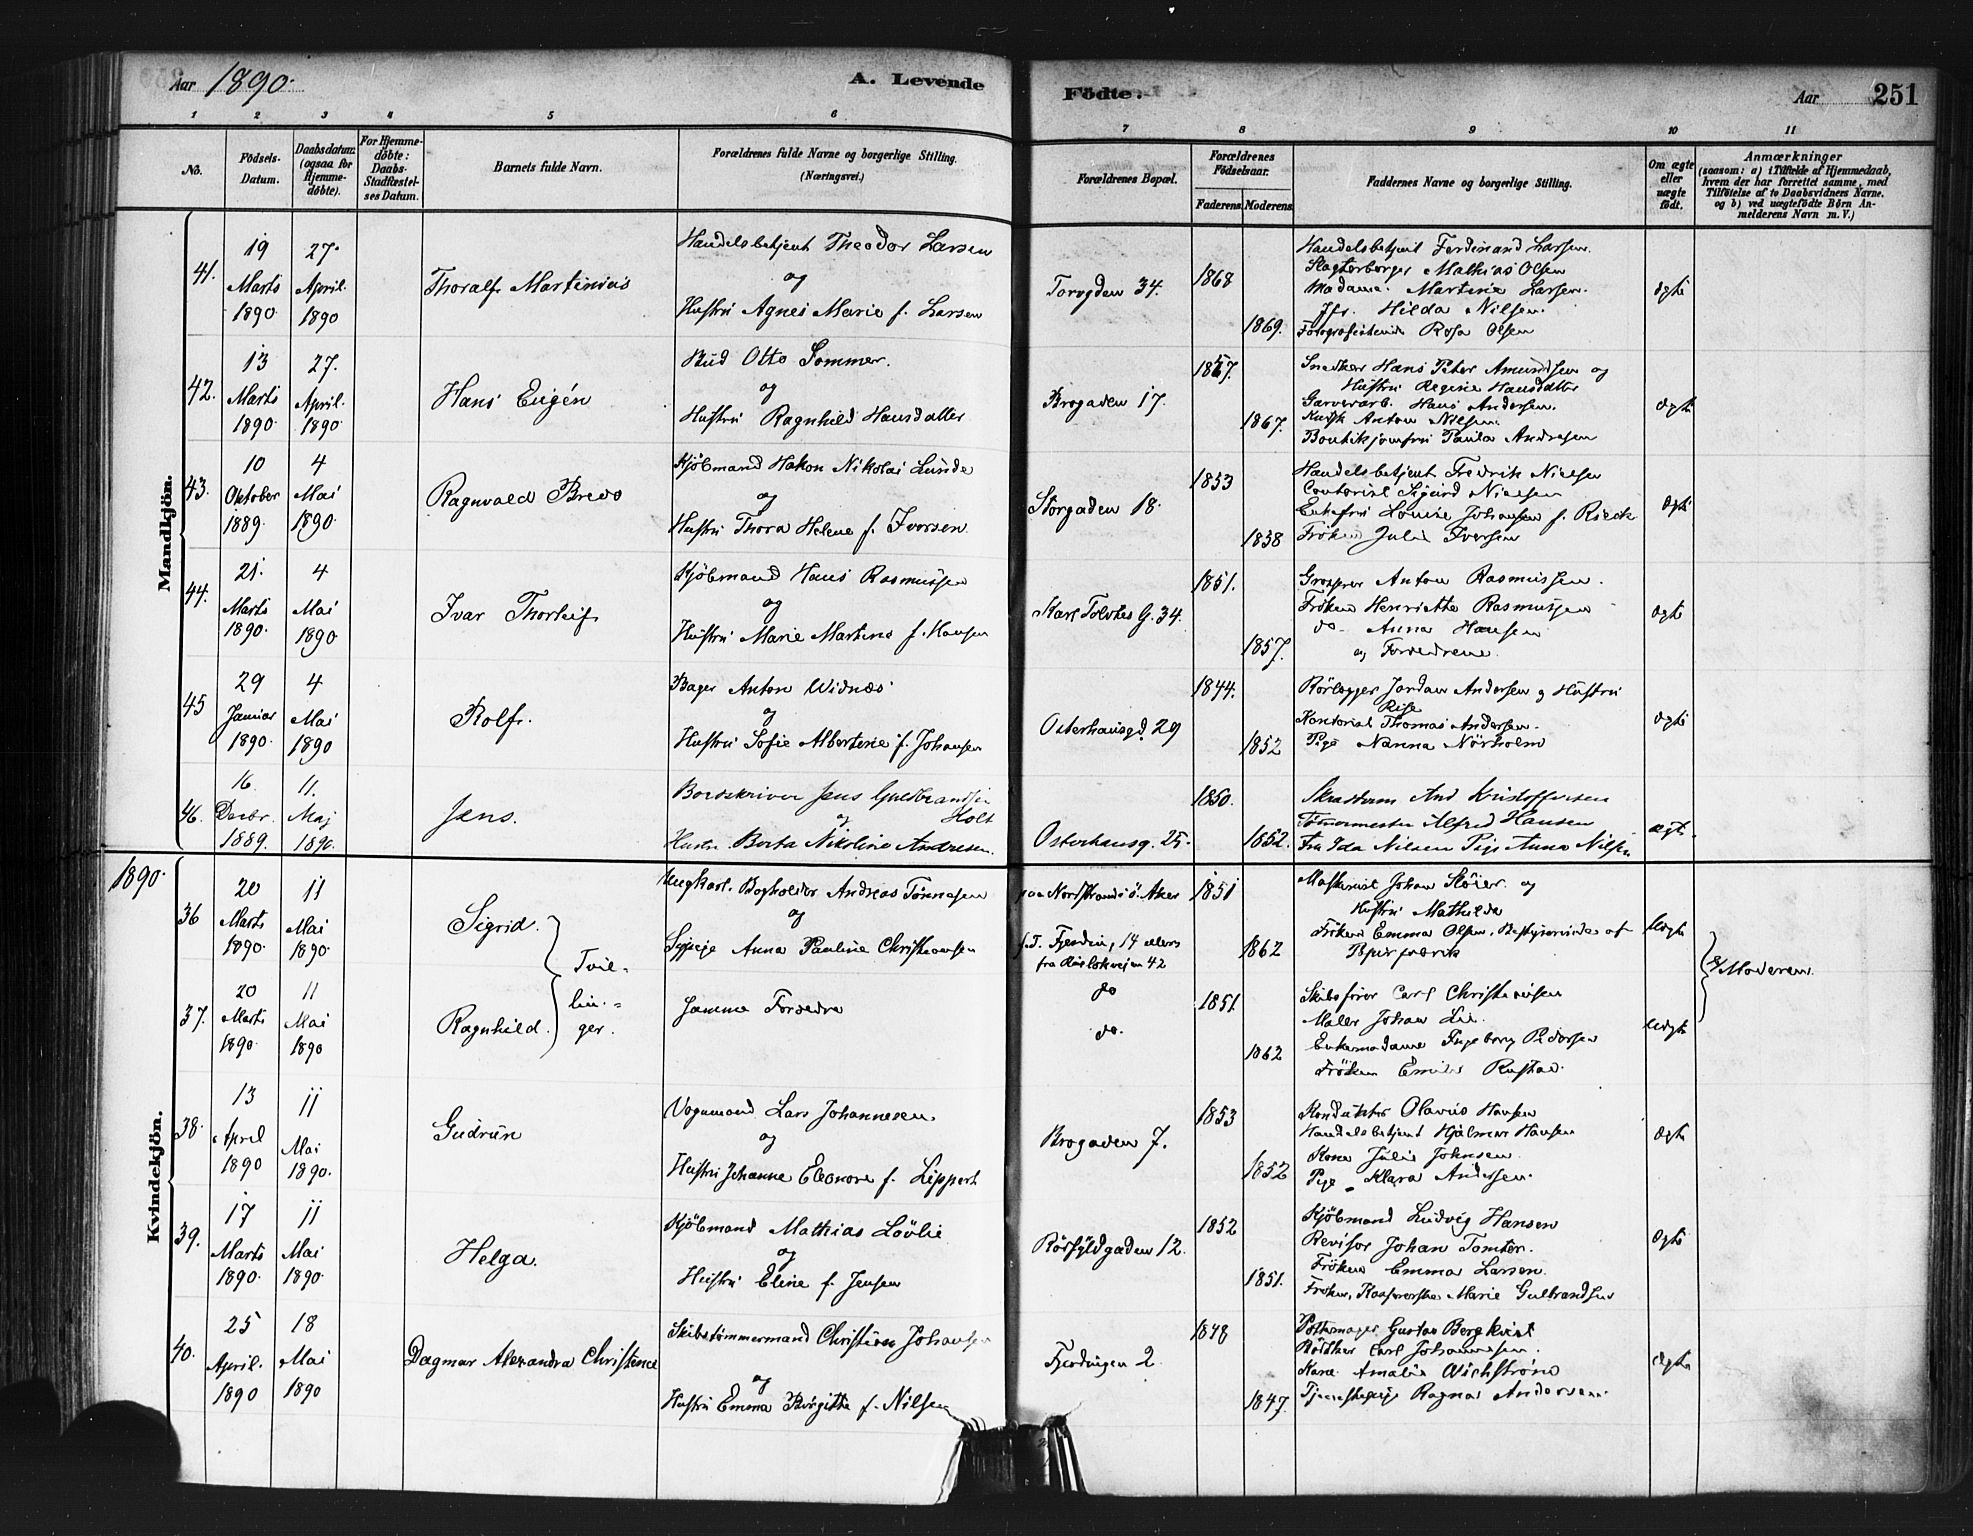 Aar 1890. A. Levende Födte. Aar 251
1 2 3 4 5 6 7 8 9 10 11
No.
Födsels-Datum.
Daabsdatum (ogsaa for Hjemme-döbte).
For Hjemme-döbte: Daabs-Stadfæstel-ses Datum.
Barnets fulde Navn.
Forældrenes fulde Navne og borgerlige Stilling.
(Næringsvei.)
Forældrenes Bopæl.
Forældrenes Födselsaar.
Faderens Moderens
Faddernes Navne og borgerlige Stilling.
Om ægte eller uægte födt.
Anmærkninger
(saasom: a) i Tilfælde af Hjemmedaab,
hvem der har forrettet samme, med
Tilföielse af to Daabsvidners Navne.
og b) ved uægtefödte Börn An-
melderens Navn m. V.)
Mandkjön.
41. 19 Marts 1890. 27. April. 1890
Thoralf Martinius
Handelsbetjent Theodor Larsen
og
Hustru Agnes Marie f. Larsen
Torvgden 34.
1868
1869.
Handelsbetjent Ferdinand Larsen.
Slagterborger Mathias Olsen
Madame Martine Larsen.
Jfr. Hilda Nilsen.
Rosa Olsen
ægte
42. 13 Marts 1890. 27. April. 1890.
Hans Eugén
Bud Otto Sommer.
og
Hustru Ragnhild Hansdatter
Brogaden 17.
1867.
1867.
Snedker Hans Peter Amundsen og
Hustru Regine Hansdatter
Garverarb. Hans Andersen.
Kusk Anton Nilsen
Boutikjomfru Paula Andresen
ægte
43. 10 Oktober 1889. 4 Mai 1890.
Ragnvald Bredo
Kjöbmand Hakon Nikolai Lunde
og
Hustru Thora Helene f. Iversen.
Storgaden 18.
1853
1838
Handelsbetjent Fredrik Nielsen
Contorist Sigurd Nielsen
Enkefru Louise Johansen f. Rieck
Fröken Julie Iversen
ægte
44. 21. Marts 1890. 4 Mai 1890
Ivar Thorleif.
Kjöbmand Hans Rasmussen
og
Hustru Marie Martine f. Hansen
Karl Tolvtes G. 34.
1851.
1857.
Grosserer Anton Rasmussen.
Fröken Henriette Rasmussen
do - Anna Hansen
og Forældrene.
ægte
45 29 Januar 1890. 4 Mai 1890
Rolf.
Bager Anton Widnæs
og
Hustru Sofie Albertine f. Johansen
Osterhausgd. 29
1844.
1852
Rörlægger Jordan Andersen og Hustru
Kontorist Thomas Andersen.
Pige Nanna Nörholm
ægte
46. 16. Decbr. 1889. 11. Maj 1890.
Jens.
Bordskriver Jens Guldbrandsen
Holt
og
Hustru Berta Nikoline Andresen.
Osterhausg. 25.
1850.
1852.
And Kristoffersen
Tömmermester Alfred Hansen
Fru Ida Nilsen Pige Anna Nilsen
ægte
1890.
Kvindekjön.
36 20 Marts 1890. 11 Mai 1890.
Sigrid.
Tvil-
lin-
ger.
Ungkarl. Bogholder Andreas Tönnesen
og
Sypige Anna Pauline Christiansen
paa Nordstrand i Ö. Aker
f. T. Fjerdin, 14 ellers
42
1851
1862
Maskinist Johan Slöier og
Hustru Mathilde
Fröken Emma Olsen, Bestyrerinde af
Papirfabrik
Uægte
v/ Moderen.
37. 20 Marts 1890. 11 Mai 1890
Ragnhild.
Samme Forældre
do
do.
1851.
1862
Skibsförer Carl Christensen
Maler Johan Lie.
Enkemadame Ingeborg Pedersen
Fröken Emilie Rustad.
Uægte
38. 13 April 1890 11 Mai 1890.
Gudrun
Vognmand Lars Johannesen.
og
Hustru Johanne Eleonore f. Lippert
Brogaden 7.
1853
1852
Konduktör Olavus Hansen
Handelsbetjent Hjalmar Hansen
Kone Julie Johnsen.
Pige - Klara Andersen.
ægte
39. 17 Marts 1890. 11 Mai 1890.
Helga.
Kjöbmand Mathias Lövlie
og
Hustru Eline f. Jensen
Rörfyldgaden 12.
1852
1851.
Kjöbmand Ludvig Hansen
Revisor Johan Tomter.
Fröken Emma Larsen.
Fröken, Marie Gulbrandsen
ægte
40. 25 April. 1890 18 Mai 1890
Dagmar Alexandra Christence
Skibstömmermand Christian Johansen
og
Hustru Emma Birgitte f. Nilsen
Fjerdingen 2.
1848
1847.
Pottemager Gustav Bergkvist
Bödker Carl Johannesen.
Kone Amalie Wichström
Tjenestepige Ragna Andersen.
ægte